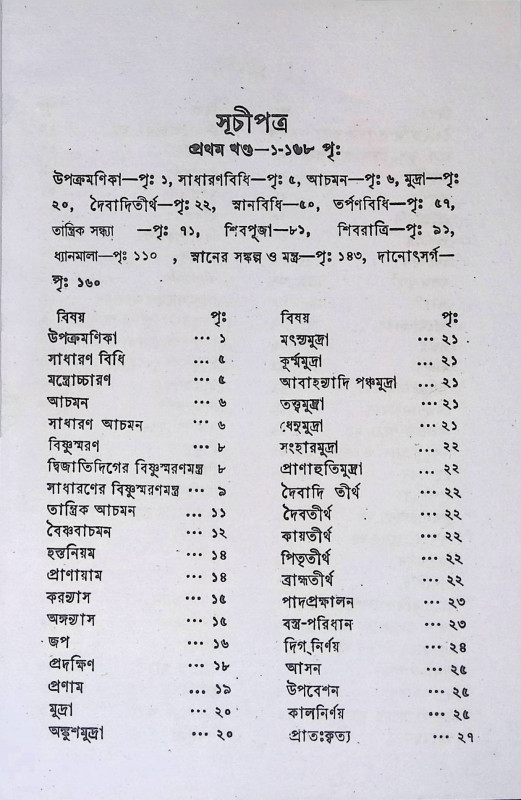 সূচীপত্র
প্রথম খণ্ড—১-১৬৮ পৃঃ
উপক্রমণিকা—পৃঃ ১, সাধারণবিধি—পৃঃ ৫, আচমন—পৃঃ ৬, মুদ্রা—পৃঃ
২০, দৈবাদিতীর্থ—পৃঃ ২২, স্নানবিধি—৫০, তর্পণবিধি—পৃঃ ৫৭,
তান্ত্রিক সন্ধ্যা —পৃঃ ৭১, শিবপূজা—৮১, শিবরাত্রি—পৃঃ ৯১,
ধ্যানমালা—পৃঃ ১১০ , স্নানের সঙ্কল্প ও মন্ত্র—পৃঃ ১৪৩, দানোৎসর্গ—
পৃঃ ১৬০
বিষয় পৃঃ
উপক্রমণিকা ··· ১
সাধারণ বিধি ··· ৫
মন্ত্রোচ্চারণ ··· ৫
আচমন ··· ৬
সাধারণ আচমন ··· ৬
বিষ্ণুস্মরণ ··· ৮
দ্বিজাতিদিগের বিষ্ণুস্মরণমন্ত্র ৮
সাধারণের বিষ্ণুস্মরণমন্ত্র ··· ৯
তান্ত্রিক আচমন ... ১১
বৈষ্ণবাচমন ··· ১২
হস্তনিয়ম ··· ১৪
প্রাণায়াম ··· ১৪
করন্যাস ··· ১৫
অঙ্গন্যাস ··· ১৫
জপ ··· ১৬
প্রদক্ষিণ ··· ১৮
প্রণাম ... ১৯
মুদ্রা ··· ২০
অঙ্কুশমুদ্রা ··· ২০
বিষয় পৃঃ
মৎস্যমুদ্রা ... ২১
কূর্ম্মমুদ্রা ··· ২১
আবাহন্যাদি পঞ্চমুদ্রা ... ২১
তত্ত্বমুদ্রা ··· ২১
ধেনুমুদ্রা ··· ২১
সংহারমুদ্রা ... ২২
প্রাণাহুতিমুদ্রা ... ২২
দৈবাদি তীর্থ ··· ২২
দৈবতীর্থ ··· ২২
কায়তীর্থ ··· ২২
পিতৃতীর্থ ··· ২২
ব্রাহ্মতীর্থ ··· ২২
পাদপ্রক্ষালন ··· ২৩
বস্ত্র-পরিধান ··· ২৩
দিগ্ নির্ণয় ··· ২৪
আসন ··· ২৫
উপবেশন ··· ২৫
কালনির্ণয় ··· ২৫
প্রাতঃকৃত্য ··· ২৭